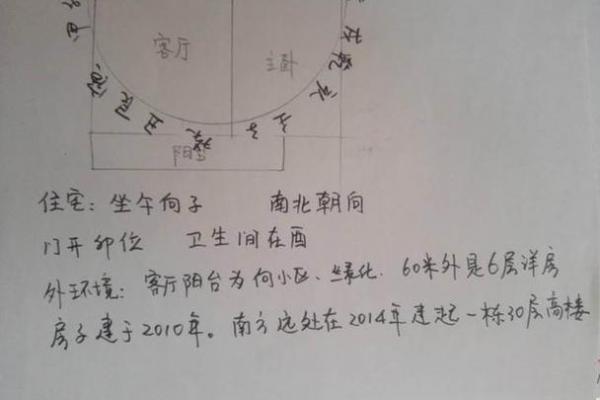 客厅
主卧
丑
癸
子
壬
阳台
住宅：坐午向子 南北朝向
门开卯位 卫生间在酉
外环境：客厅阳台为向小区、绿化、60米外是6层洋房
房子建于2010年。南方远处在2014年建起一栋30层高楼